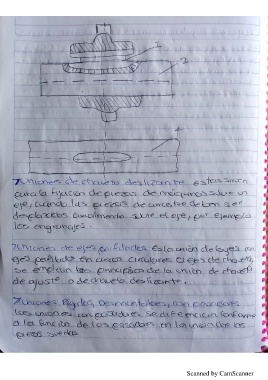 1
2
Uniones de chaveta deslizante estas sirven
para la fijación de piezas de máquinas sobre un
eje, cuando las piezas de arrastre deben ser
desplazadas axialmente sobre el eje, por ejemplo
los engranajes.
Uniones de ejes perfilados es la unión de bujes en
ejes perfilados en arcos circulares o ejes de chaveta,
se emplean los principios de la unión de chaveta
de ajuste o de chaveta deslizante.
Uniones Rígidas, Desmontables, con pasadores
Las uniones con pasadores se diferencian conforme
a la función de los pasadores, en la unión de las
piezas sueltas
Scanned by CamScanner